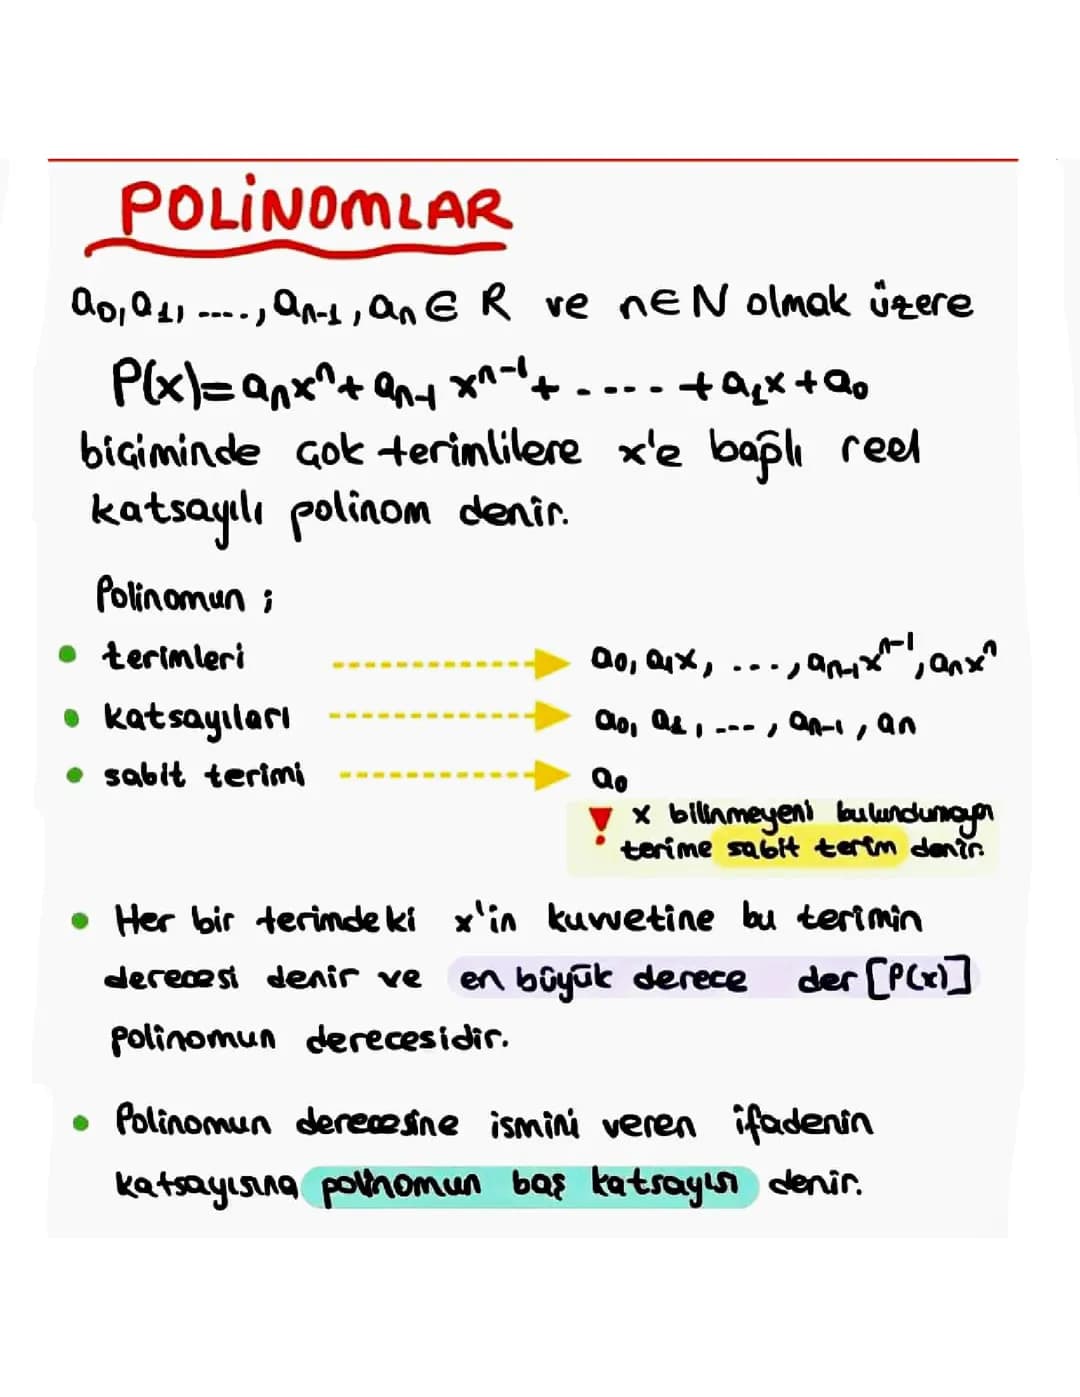 POLİNOMLAR
a₀, a₁, ...., aₙ₋₁, aₙ ∈ R ve n∈N olmak üzere
P(x)=aₙxⁿ+aₙ₋₁xⁿ⁻¹+.....+a₁x+a₀
biçiminde çok terimlilere x'e bağlı reel
katsayılı polinom denir.
Polinomun ;
• terimleri → a₀, a₁x, ..., aₙ₋₁xⁿ⁻¹, aₙxⁿ
• katsayıları → a₀, a₁, ---, aₙ₋₁, aₙ
• sabit terimi → a₀
! x bilinmeyeni bulundurmayan
terime sabit terim denir.
• Her bir terimdeki x'in kuvvetine bu terimin
derecesi denir ve en büyük derece der[P(x)]
polinomun derecesidir.
• Polinomun derecesine ismini veren ifadenin
katsayısına polinomun baş katsayısı denir.